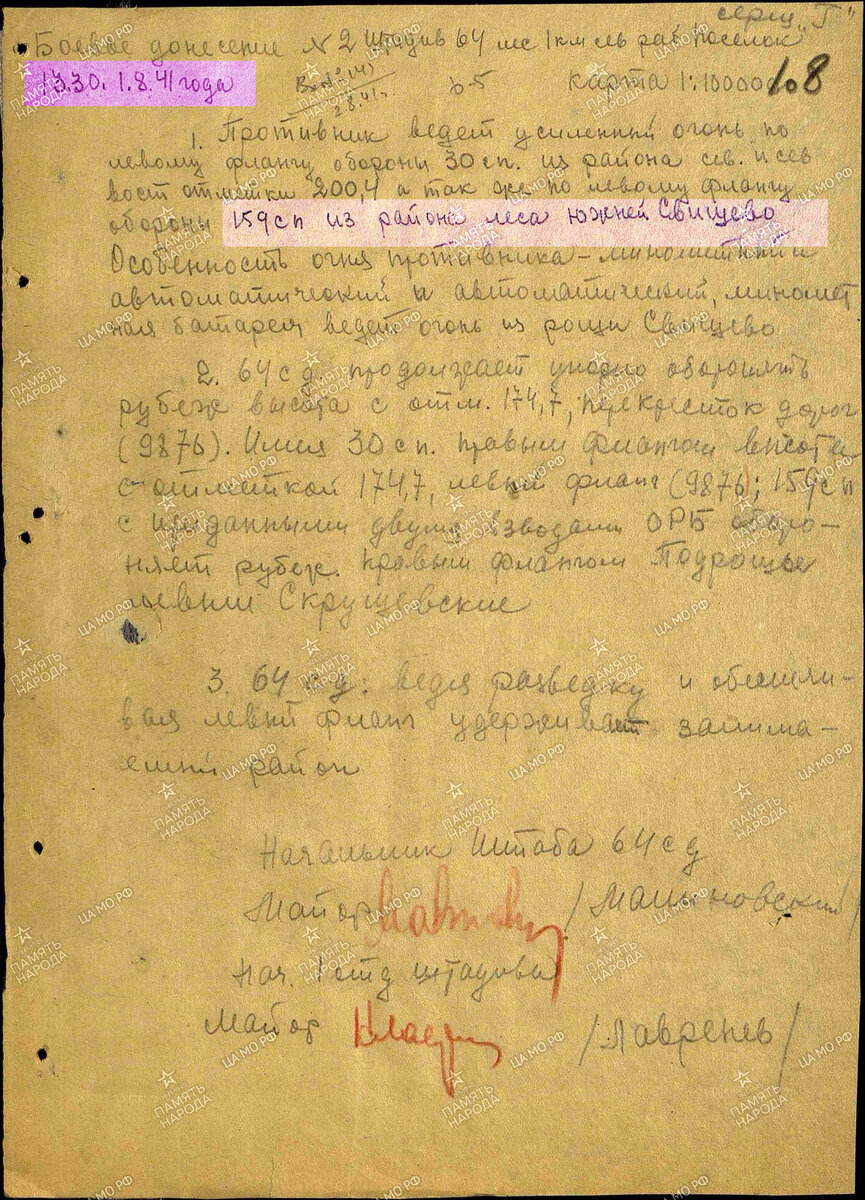 серия "Г"
Боевое донесение N 2 Штадив 64 лес 1 км сев раб. поселок
13.30. 1.8.41 года
2.8.41г.
карта 1:100000
108
1. Противник ведет усиленный огонь по
левому флангу обороны 30 сп. из района сев. и сев
вост отметки 200,4 а так же по левому флангу
обороны 159 сп из района леса южней Свищево
Особенность огня противника – минометный и
автоматический и автоматический, миномет
ная батарея ведет огонь из рощи Свищево
2. 64 сд. продолжает упорно оборонять
рубеж высота с отм. 174,7, перекресток дорог
(9876). Имея 30 сп. правым флангом высота
с отметкой 174,7, левый фланг (9876); 159 сп
с приданными двумя взводами ОРБ оборо-
няет рубеж. правым флангом Подрощье
левым Скрушевские
3. 64 сд: ведя разведку и обеспечи-
вая левый фланг удерживает занима-
емый район
Начальник Штаба 64 сд
Майор /Малиновский/
Нач. 1 отд штадива
Майор /Лавренев/